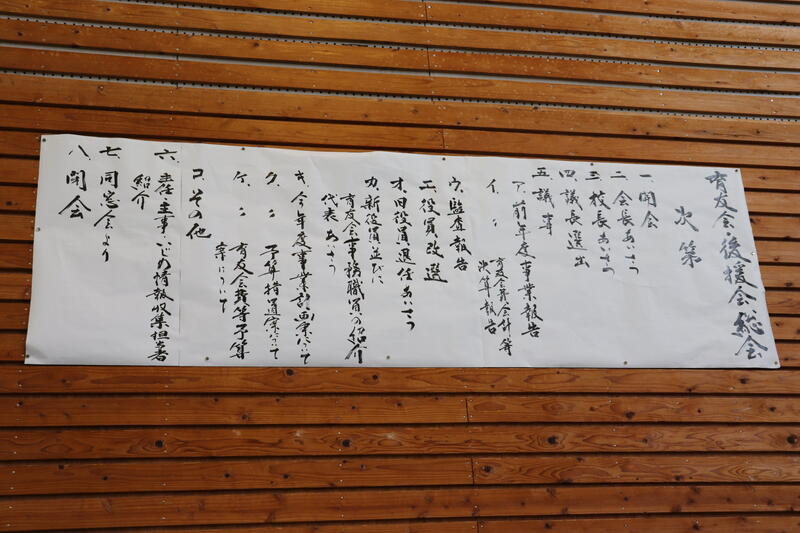 育友会・後援会総会
次第
一、開会
二、会長あいさつ
三、校長あいさつ
四、議長選出
五、議事
ア、前年度事業報告
イ、〃 育友会費会計等
決算報告
ウ、監査報告
エ、役員改選
オ、旧役員退任あいさつ
カ、新役員並びに
育友会事務職員の紹介
代表あいさつ
キ、今年度事業計画案について
ク、〃 予算措置案について
ケ、〃 育友会費等予算
案について
コ、その他
六、主任・主事・いじめ情報収集担当者
紹介
七、同窓会より
八、閉会